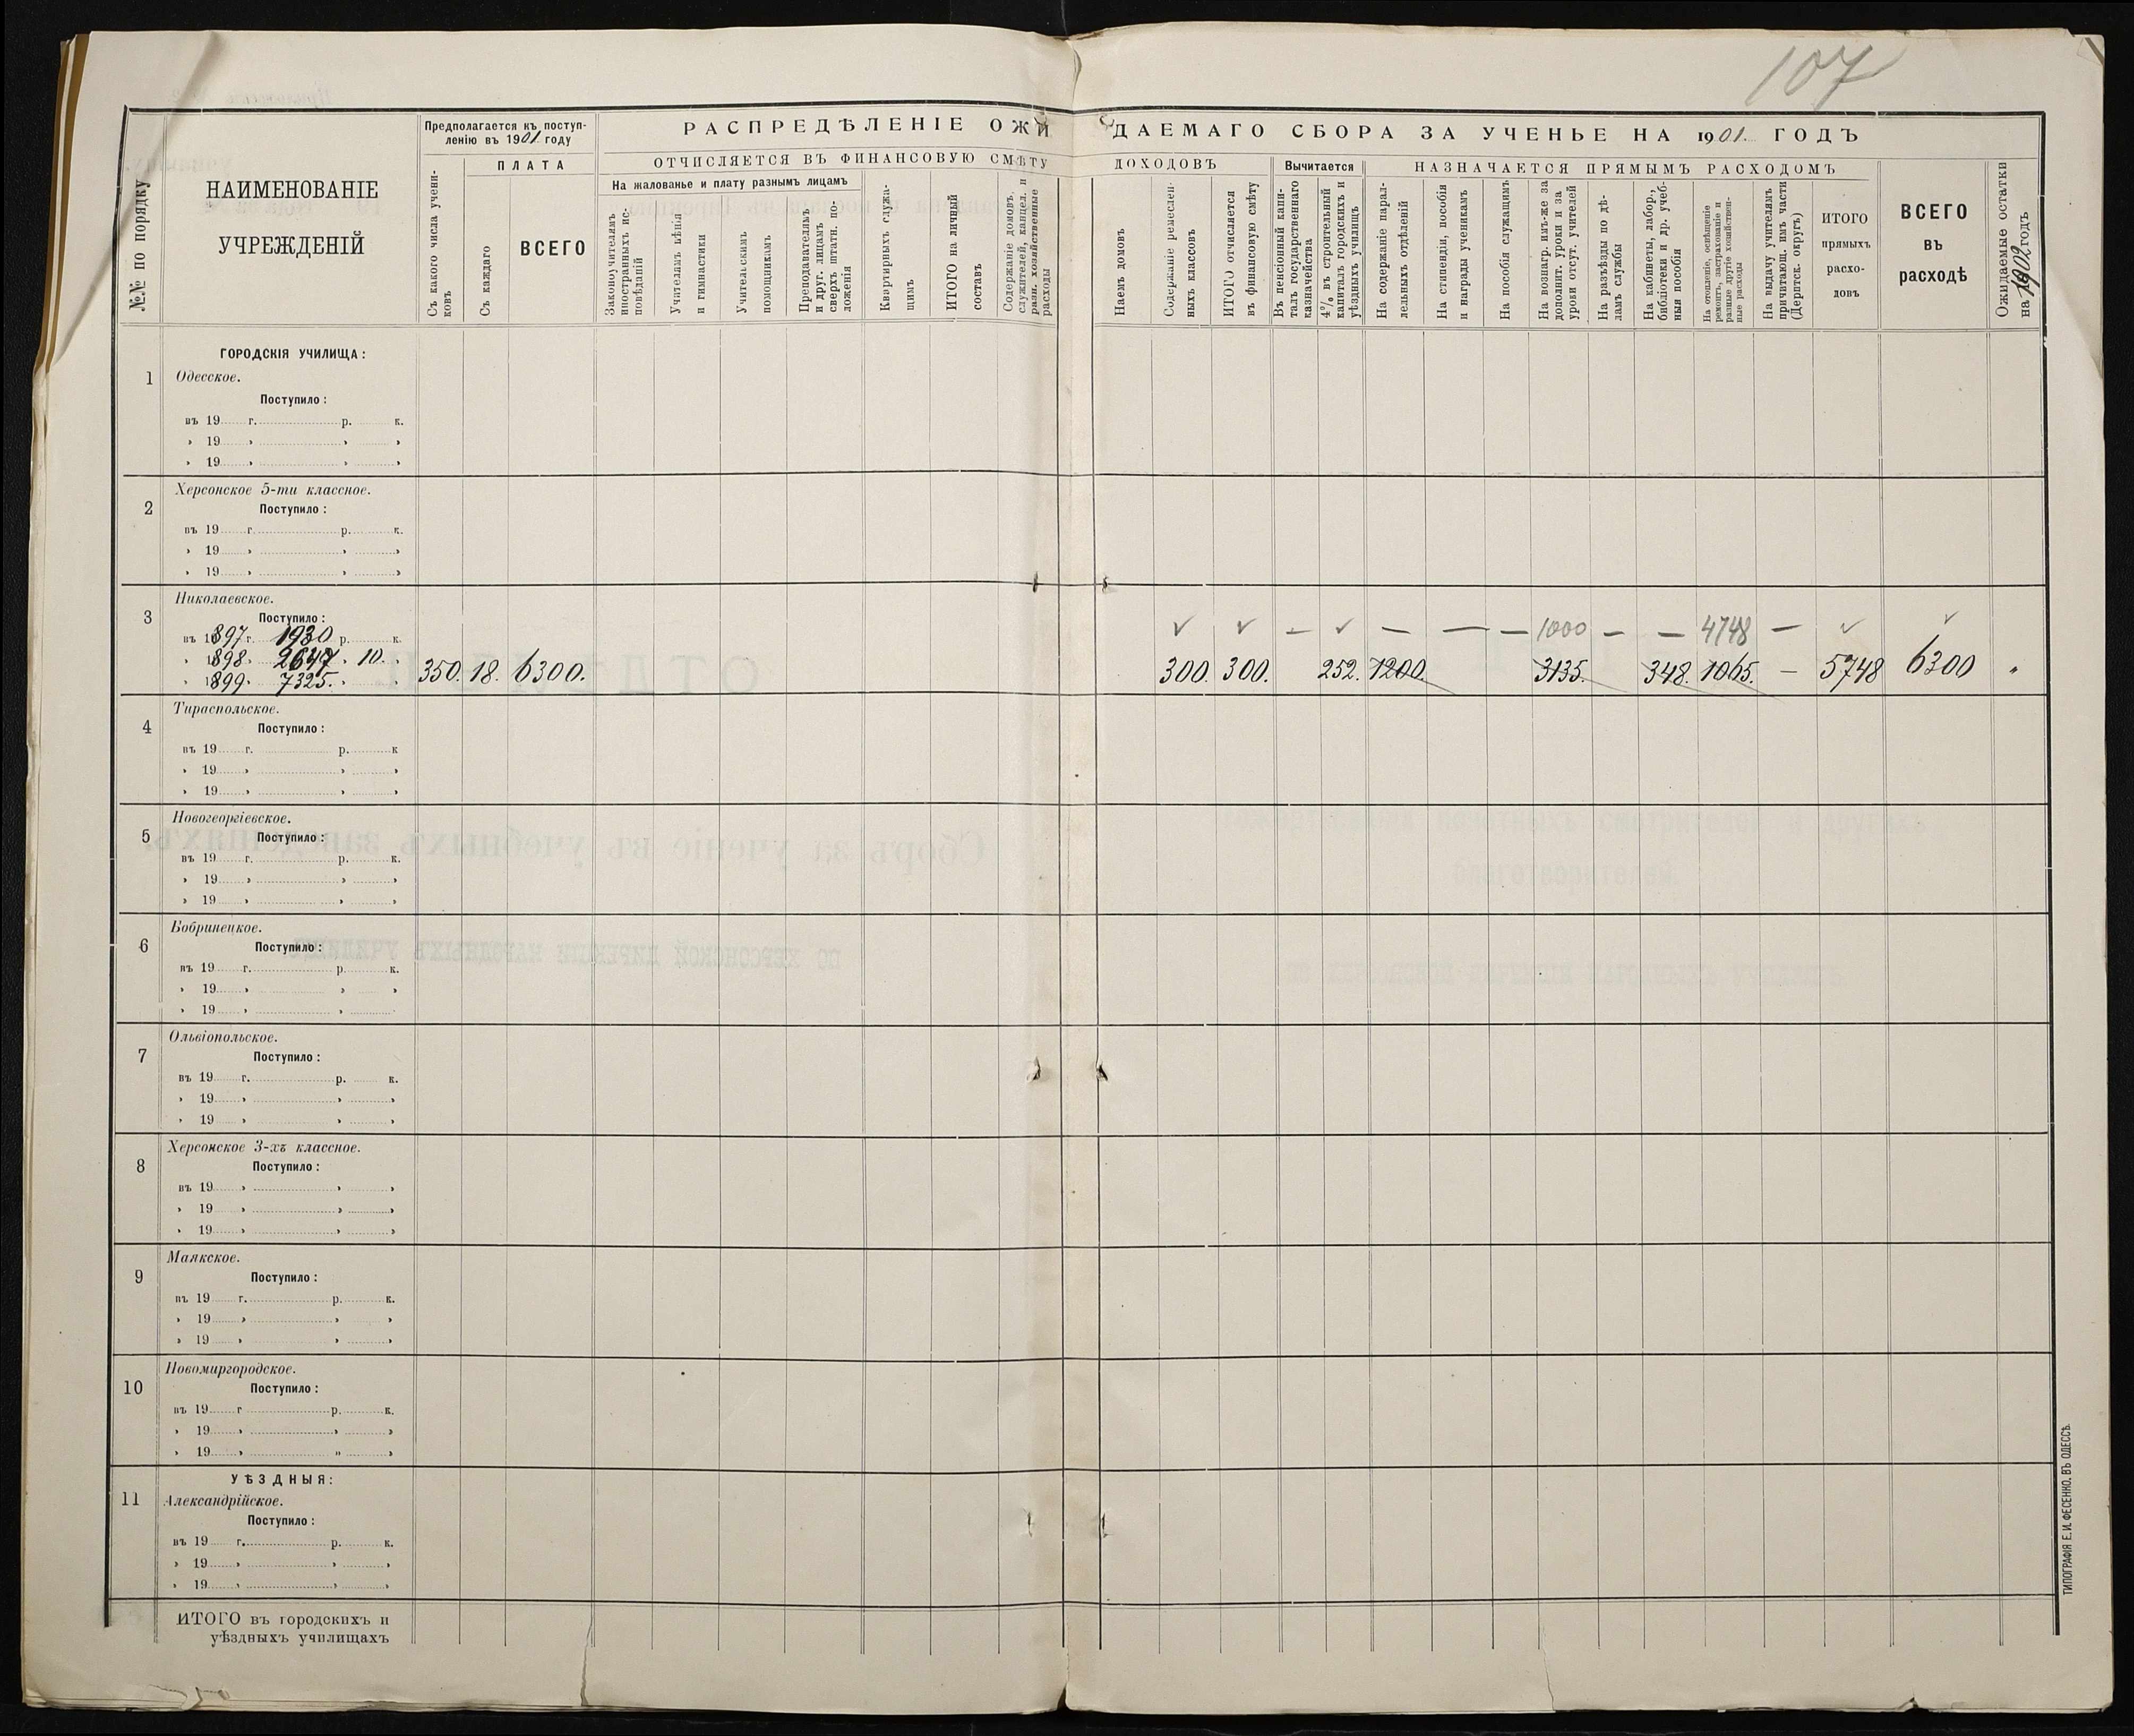 107
№№ по порядку
НАИМЕНОВАНІЕ
УЧРЕЖДЕНІЙ
Предполагается къ поступ-
ленію въ 1901 году
Съ какого числа учени-
ковъ
ПЛАТА
Съ каждаго
ВСЕГО
РАСПРЕДѢЛЕНІЕ ОЖИ
ДАЕМАГО СБОРА ЗА УЧЕНЬЕ НА 1901. ГОДЪ
ОТЧИСЛЯЕТСЯ ВЪ ФИНАНСОВУЮ СМѢТУ
ДОХОДОВЪ
На жалованье и плату разнымъ лицамъ
Законоучителямъ
иностранныхъ ис-
повѣданій
Учителямъ пѣнія
и гимнастики
Учительскимъ
помощникамъ
Преподавателямъ
и друг. лицамъ
сверхъ штатн. по-
ложенія
Квартирныхъ служа-
щимъ
ИТОГО на личный
составъ
Содержаніе домовъ,
служителей, канцел. и
разн. хозяйственные
расходы
Наемъ домовъ
Содержаніе ремеслен-
ныхъ классовъ
ИТОГО отчисляется
въ финансовую смѣту
Вычитается
Въ пенсіонный капи-
талъ государственнаго
казначейства
4% въ строительный
капиталъ городскихъ и
уѣздныхъ училищъ
НАЗНАЧАЕТСЯ ПРЯМЫМЪ РАСХОДОМЪ
На содержаніе парал-
лельныхъ отдѣленій
На стипендіи, пособія
и награды ученикамъ
На пособія служащимъ
На вознагр. имъ-же за
дополнит. уроки и за
уроки отсут. учителей
На разъѣзды по дѣ-
ламъ службы
На кабинеты, лабор.,
библіотеки и др. учеб-
ныя пособія
На отопленіе, освѣщеніе
ремонтъ, застрахованіе и
разные другіе хозяйствен-
ные расходы
На выдачу учителямъ
причитающ. имъ части
(Дерптск. округъ)
ИТОГО
прямыхъ
расхо-
довъ
ВСЕГО
въ
расходѣ
Ожидаемые остатки
на 1902 годъ
ГОРОДСКІЯ УЧИЛИЩА:
1 Одесское.
Поступило:
въ 19 г. р. к.
" 19 " " "
" 19 " " "
2 Херсонское 5-ти классное.
Поступило:
въ 19 г. р. к.
" 19 " " "
" 19 " " "
3 Николаевское.
Поступило:
въ 1897 г. 1930 р. к.
✓ ✓ — ✓ — — — 1000 — — 4748 — ✓ ✓
" 1898 " 2647 " 10. "
350. 18. 6300. 300. 300. 252. 1200. 3135. 348. 1065. — 5748 6300 "
" 1899 " 7325. " "
4 Тираспольское.
Поступило:
въ 19 г. р. к
" 19 " " "
" 19 " " "
5 Новогеоргіевское.
Поступило:
въ 19 г. р. к.
" 19 " " "
" 19 " " "
6 Бобринецкое.
Поступило:
въ 19 г. р. к.
" 19 " " "
" 19 " "
7 Ольвіопольское.
Поступило:
въ 19 г. р. к.
" 19 " " "
" 19 " " "
8 Херсонское 3-хъ классное.
Поступило:
въ 19 " " "
" 19 " " "
" 19 " " "
9 Маякское.
Поступило:
въ 19 г. р. к.
" 19 " " "
" 19 " " "
10 Новомиргородское.
Поступило:
въ 19 г р. к.
" 19 " " "
" 19 " " "
УѢЗДНЫЯ:
11 Александрійское.
Поступило:
въ 19 г. р. к.
" 19 " " "
" 19 " " "
ИТОГО въ городскихъ и
уѣздныхъ училищахъ
ТИПОГРАФІЯ Е. И. ФЕСЕНКО, ВЪ ОДЕССѢ.